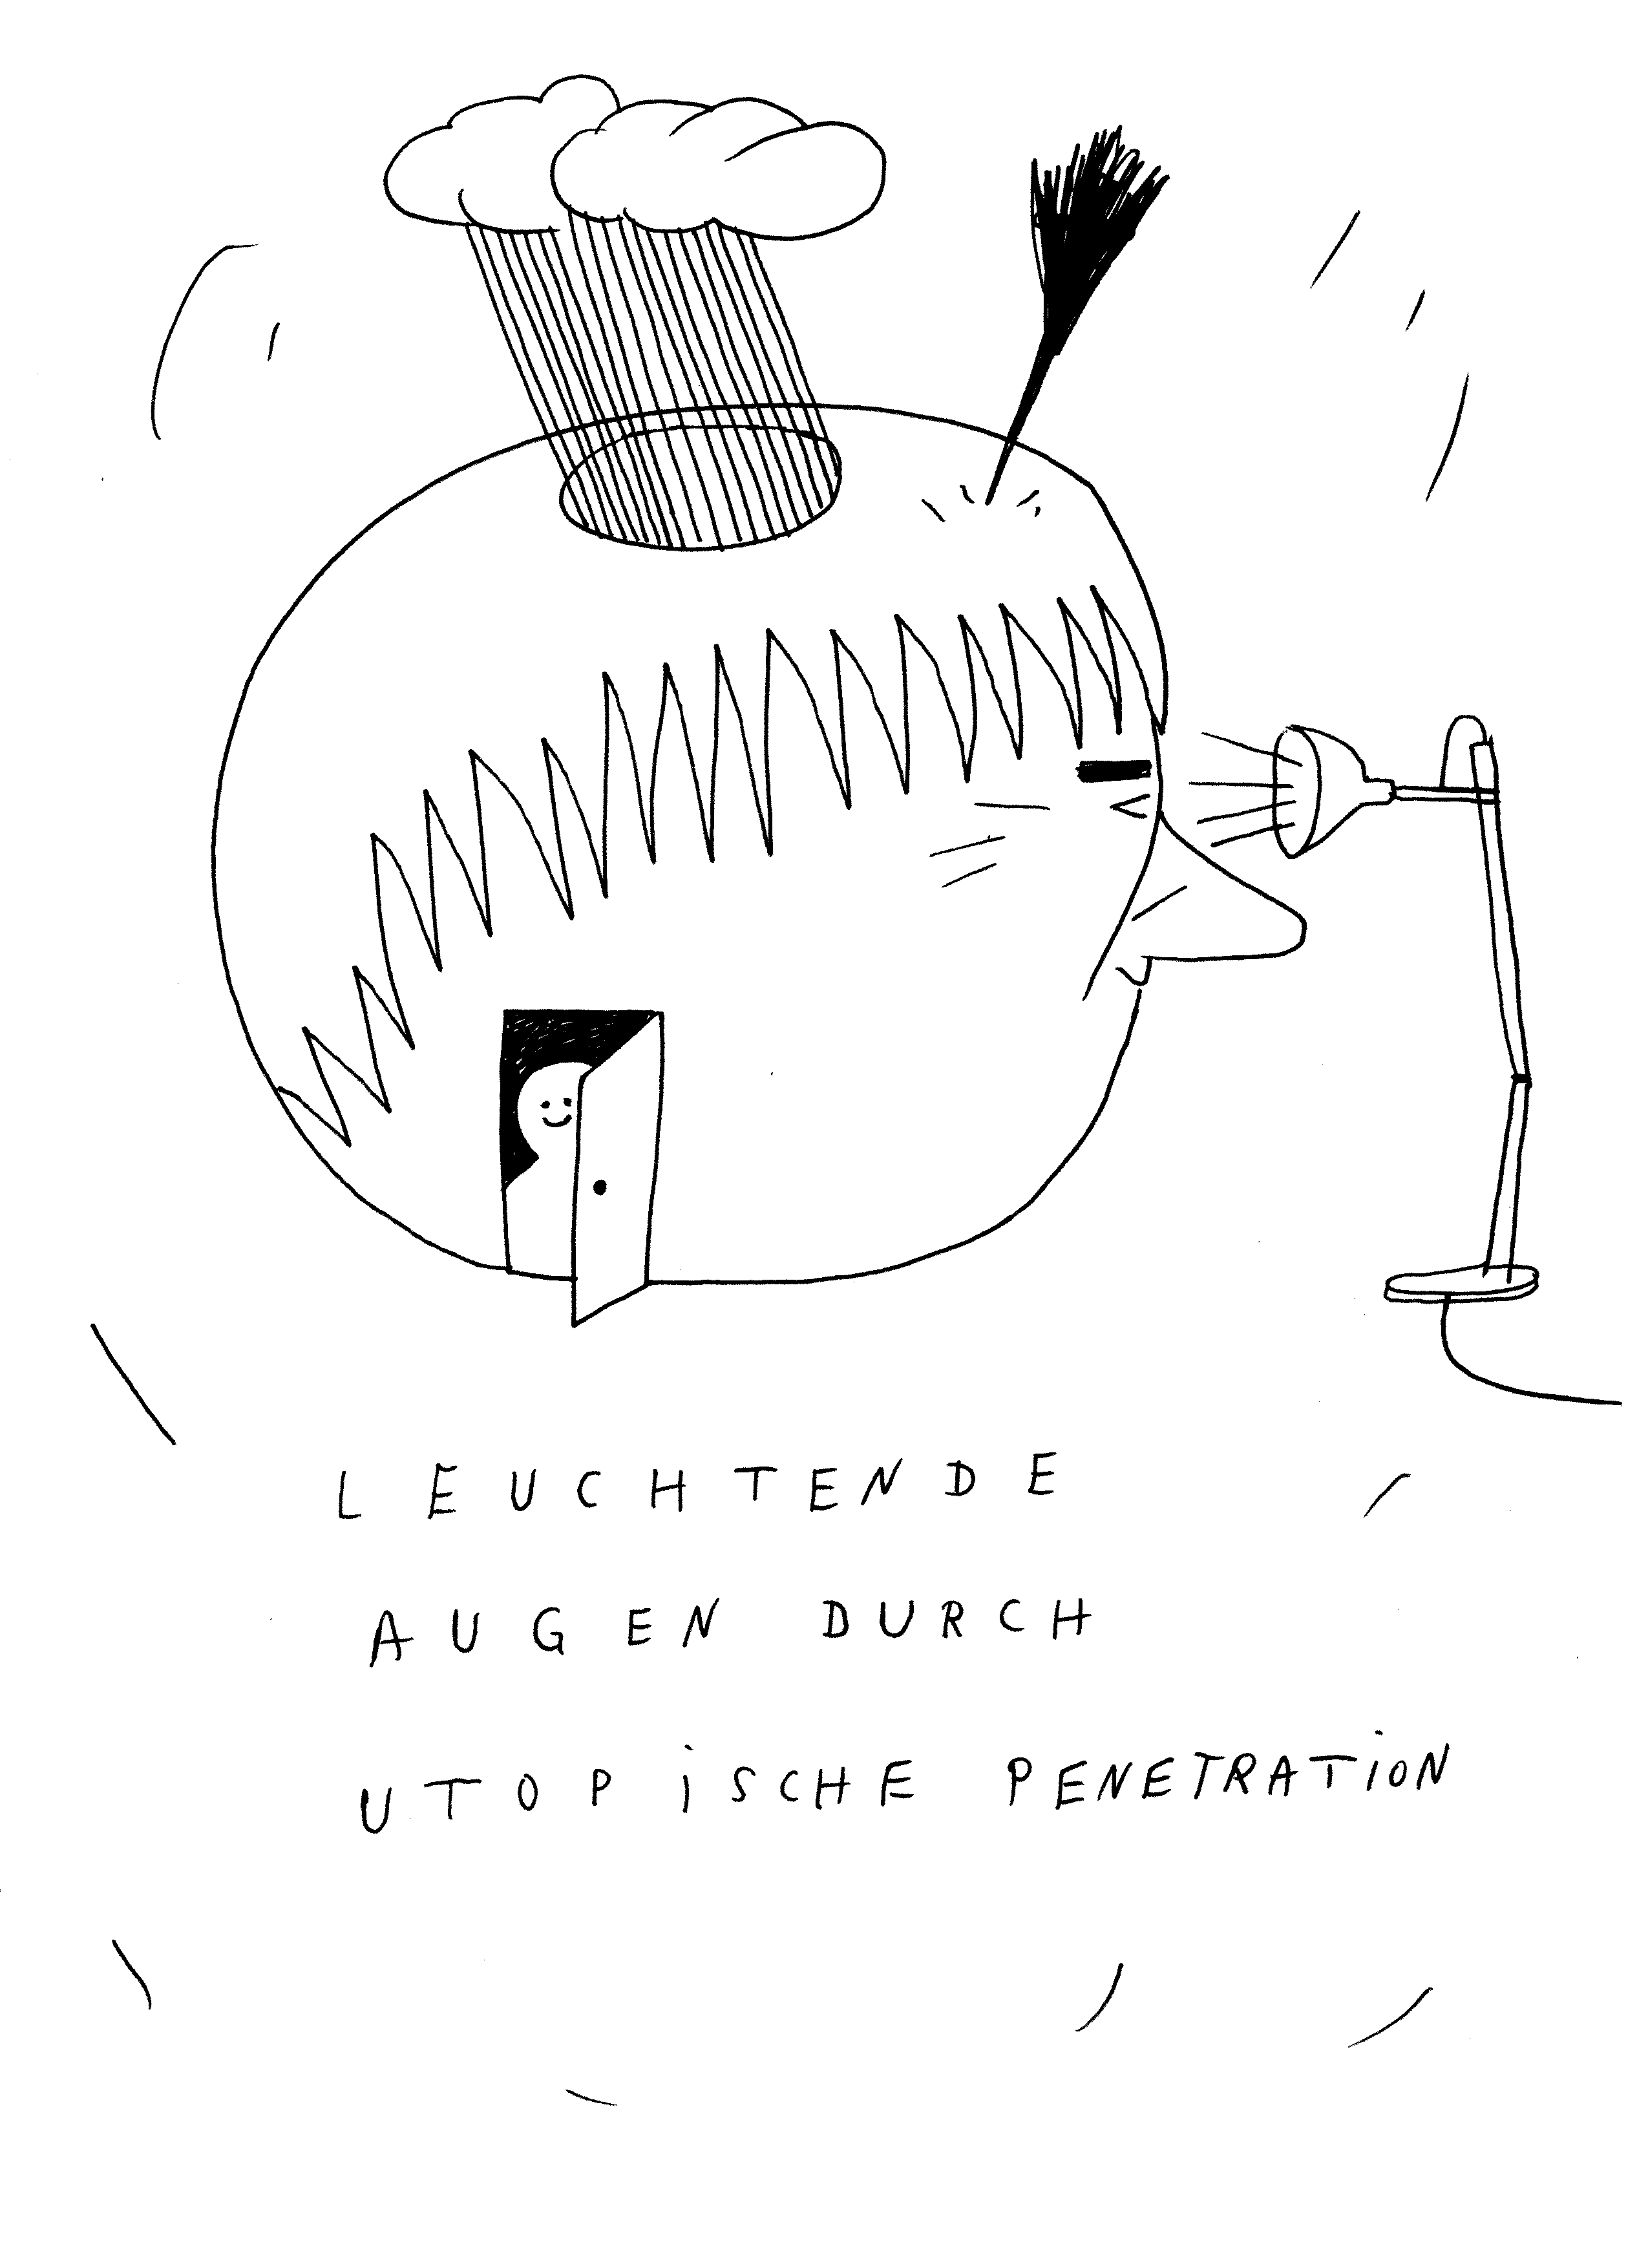 LEUCHTENDE
AUGEN DURCH
UTOPiSCHE PENETRATiON